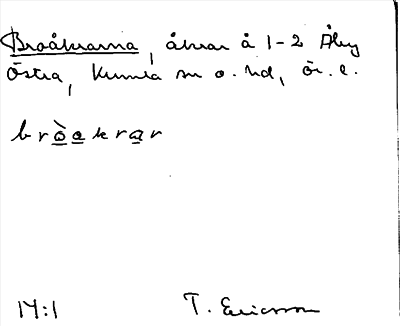 Broåkrarna, åkrar å 1-2 Åby
Östra, Kumla sn o. hd, Ör. l.
bròakrar
14:1 T. Ericsson